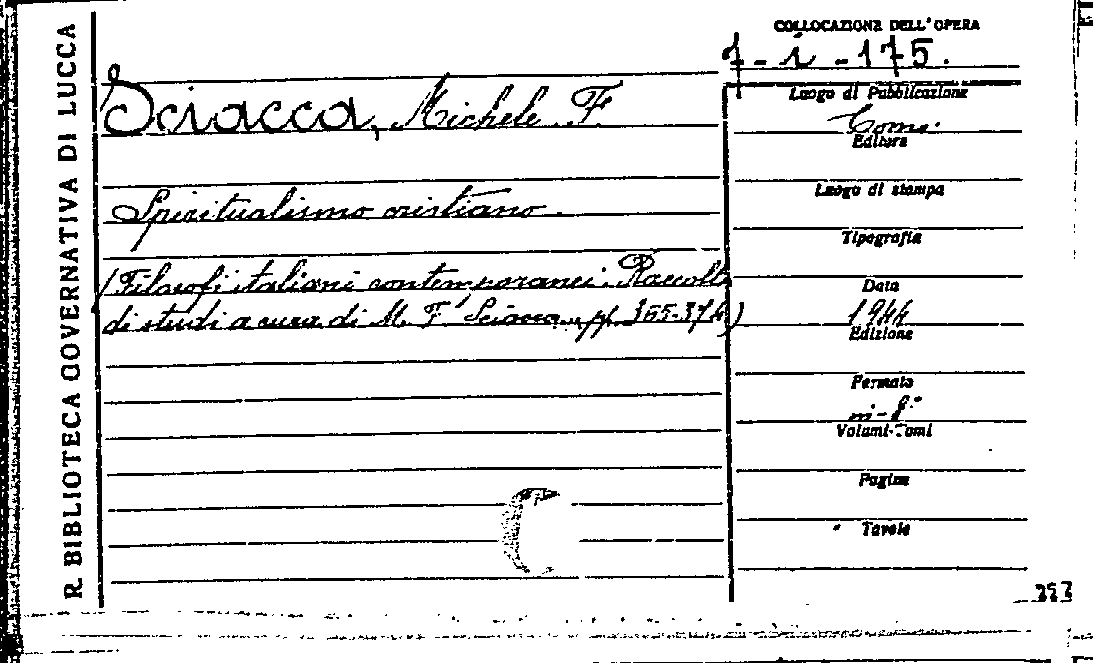 R. BIBLIOTECA GOVERNATIVA DI LUCCA
COLLOCAZIONE DELL'OPERA
7-1-175.
Sciacca, Michele F.
Spiritualismo cristiano.
(Filosofi italiani contemporanei. Raccolta
di studi a cura di M. F. Sciacca, pp. 365-374)
Luogo di Pubblicazione
Como.
Editore
Luogo di stampa
Tipografia
Data
1944
Edizione
Formato
in-8°
Volumi-Tomi
Pagine
Tavole